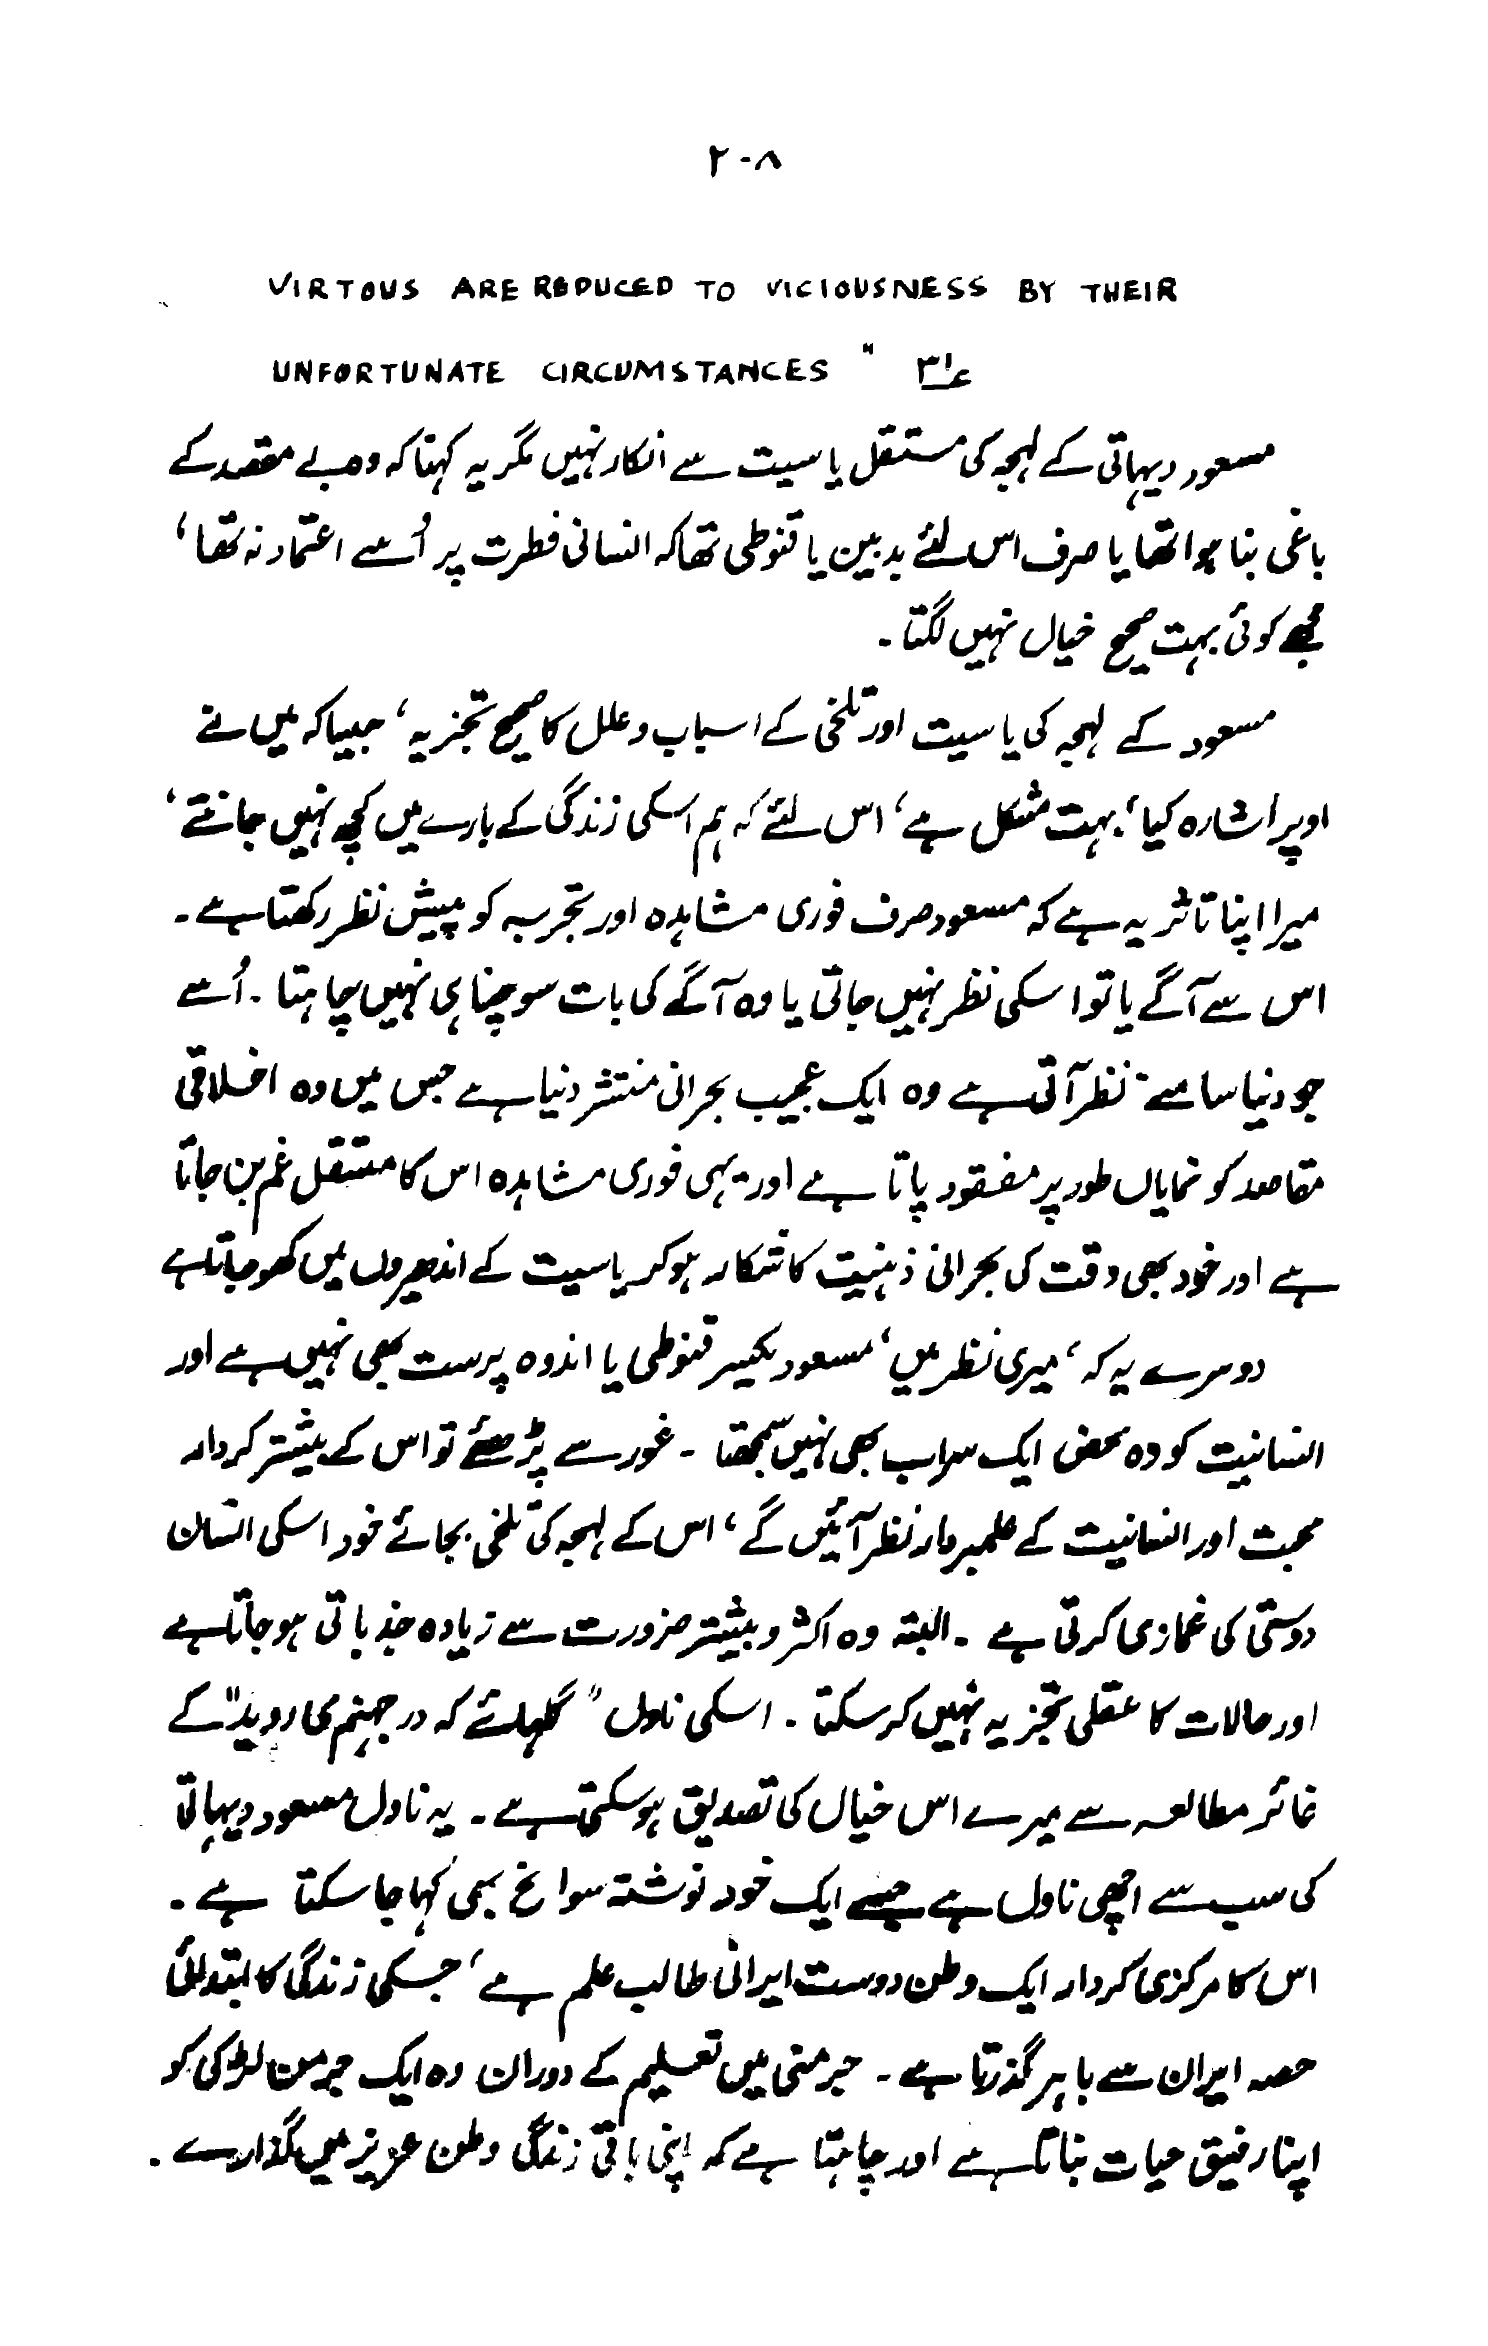 ۲۰۸
VIRTOUS ARE REDUCED TO VICIOUSNESS BY THEIR
UNFORTUNATE CIRCUMSTANCES " ۳۱؎
مسعود دیہاتی کے لہجہ کی مستقل یاسیت سے انکار نہیں مگر یہ کہنا کہ وہ بے مقصد کے
باغی بنا ہوا تھا یا صرف اس لئے بدبین یا قنوطی تھا کہ انسانی فطرت پر اُسے اعتماد نہ تھا،
مجھے کوئی بہت صحیح خیال نہیں لگتا۔
مسعود کے لہجہ کی یاسیت اور تلخی کے اسباب و علل کا صحیح تجزیہ، جیسا کہ میں نے
اوپر اشارہ کیا، بہت مشکل ہے، اس لئے کہ ہم اسکی زندگی کے بارے میں کچھ نہیں جانتے،
میرا اپنا تاثر یہ ہے کہ مسعود صرف فوری مشاہدہ اور تجربہ کو پیش نظر رکھتا ہے۔
اس سے آگے یا تو اسکی نظر نہیں جاتی یا وہ آگے کی بات سوچنا ہی نہیں چاہتا۔ اُسے
جو دنیا سامنے نظر آتی ہے وہ ایک عجیب بحرانی منتشر دنیا ہے جس میں وہ اخلاقی
مقاصد کو نمایاں طور پر مفقود پاتا ہے اور یہی فوری مشاہدہ اس کا مستقل غم بن جاتا
ہے اور خود بھی وقت کی بحرانی ذہنیت کا شکار ہوکر یاسیت کے اندھیروں میں کھو جاتا ہے
دوسرے یہ کہ، میری نظر میں، مسعود یکسر قنوطی یا اندوہ پرست بھی نہیں ہے اور
انسانیت کو وہ محض ایک سراب بھی نہیں سمجھتا ۔ غور سے پڑھئے تو اس کے بیشتر کردار
محبت اور انسانیت کے علمبردار نظر آئیں گے، اس کے لہجہ کی تلخی بجائے خود اسکی انسان
دوستی کی غمازی کرتی ہے ۔ البتہ وہ اکثر و بیشتر ضرورت سے زیادہ جذباتی ہو جاتا ہے
اور حالات کا عقلی تجزیہ نہیں کرسکتا ۔ اسکی ناول "گلہائے کہ در جہنم می روید" کے
غائر مطالعہ سے میرے اس خیال کی تصدیق ہوسکتی ہے۔ یہ ناول مسعود دیہاتی
کی سب سے اچھی ناول ہے جسے ایک خود نوشتہ سوانح بھی کہا جا سکتا ہے۔
اس کا مرکزی کردار ایک وطن دوست ایرانی طالب علم ہے، جسکی زندگی کا ابتدائی
حصہ ایران سے باہر گذرتا ہے۔ جرمنی میں تعلیم کے دوران وہ ایک جرمن لڑکی کو
اپنا رفیق حیات بناتا ہے اور چاہتا ہے کہ اپنی باقی زندگی وطن عزیز میں گذارے۔